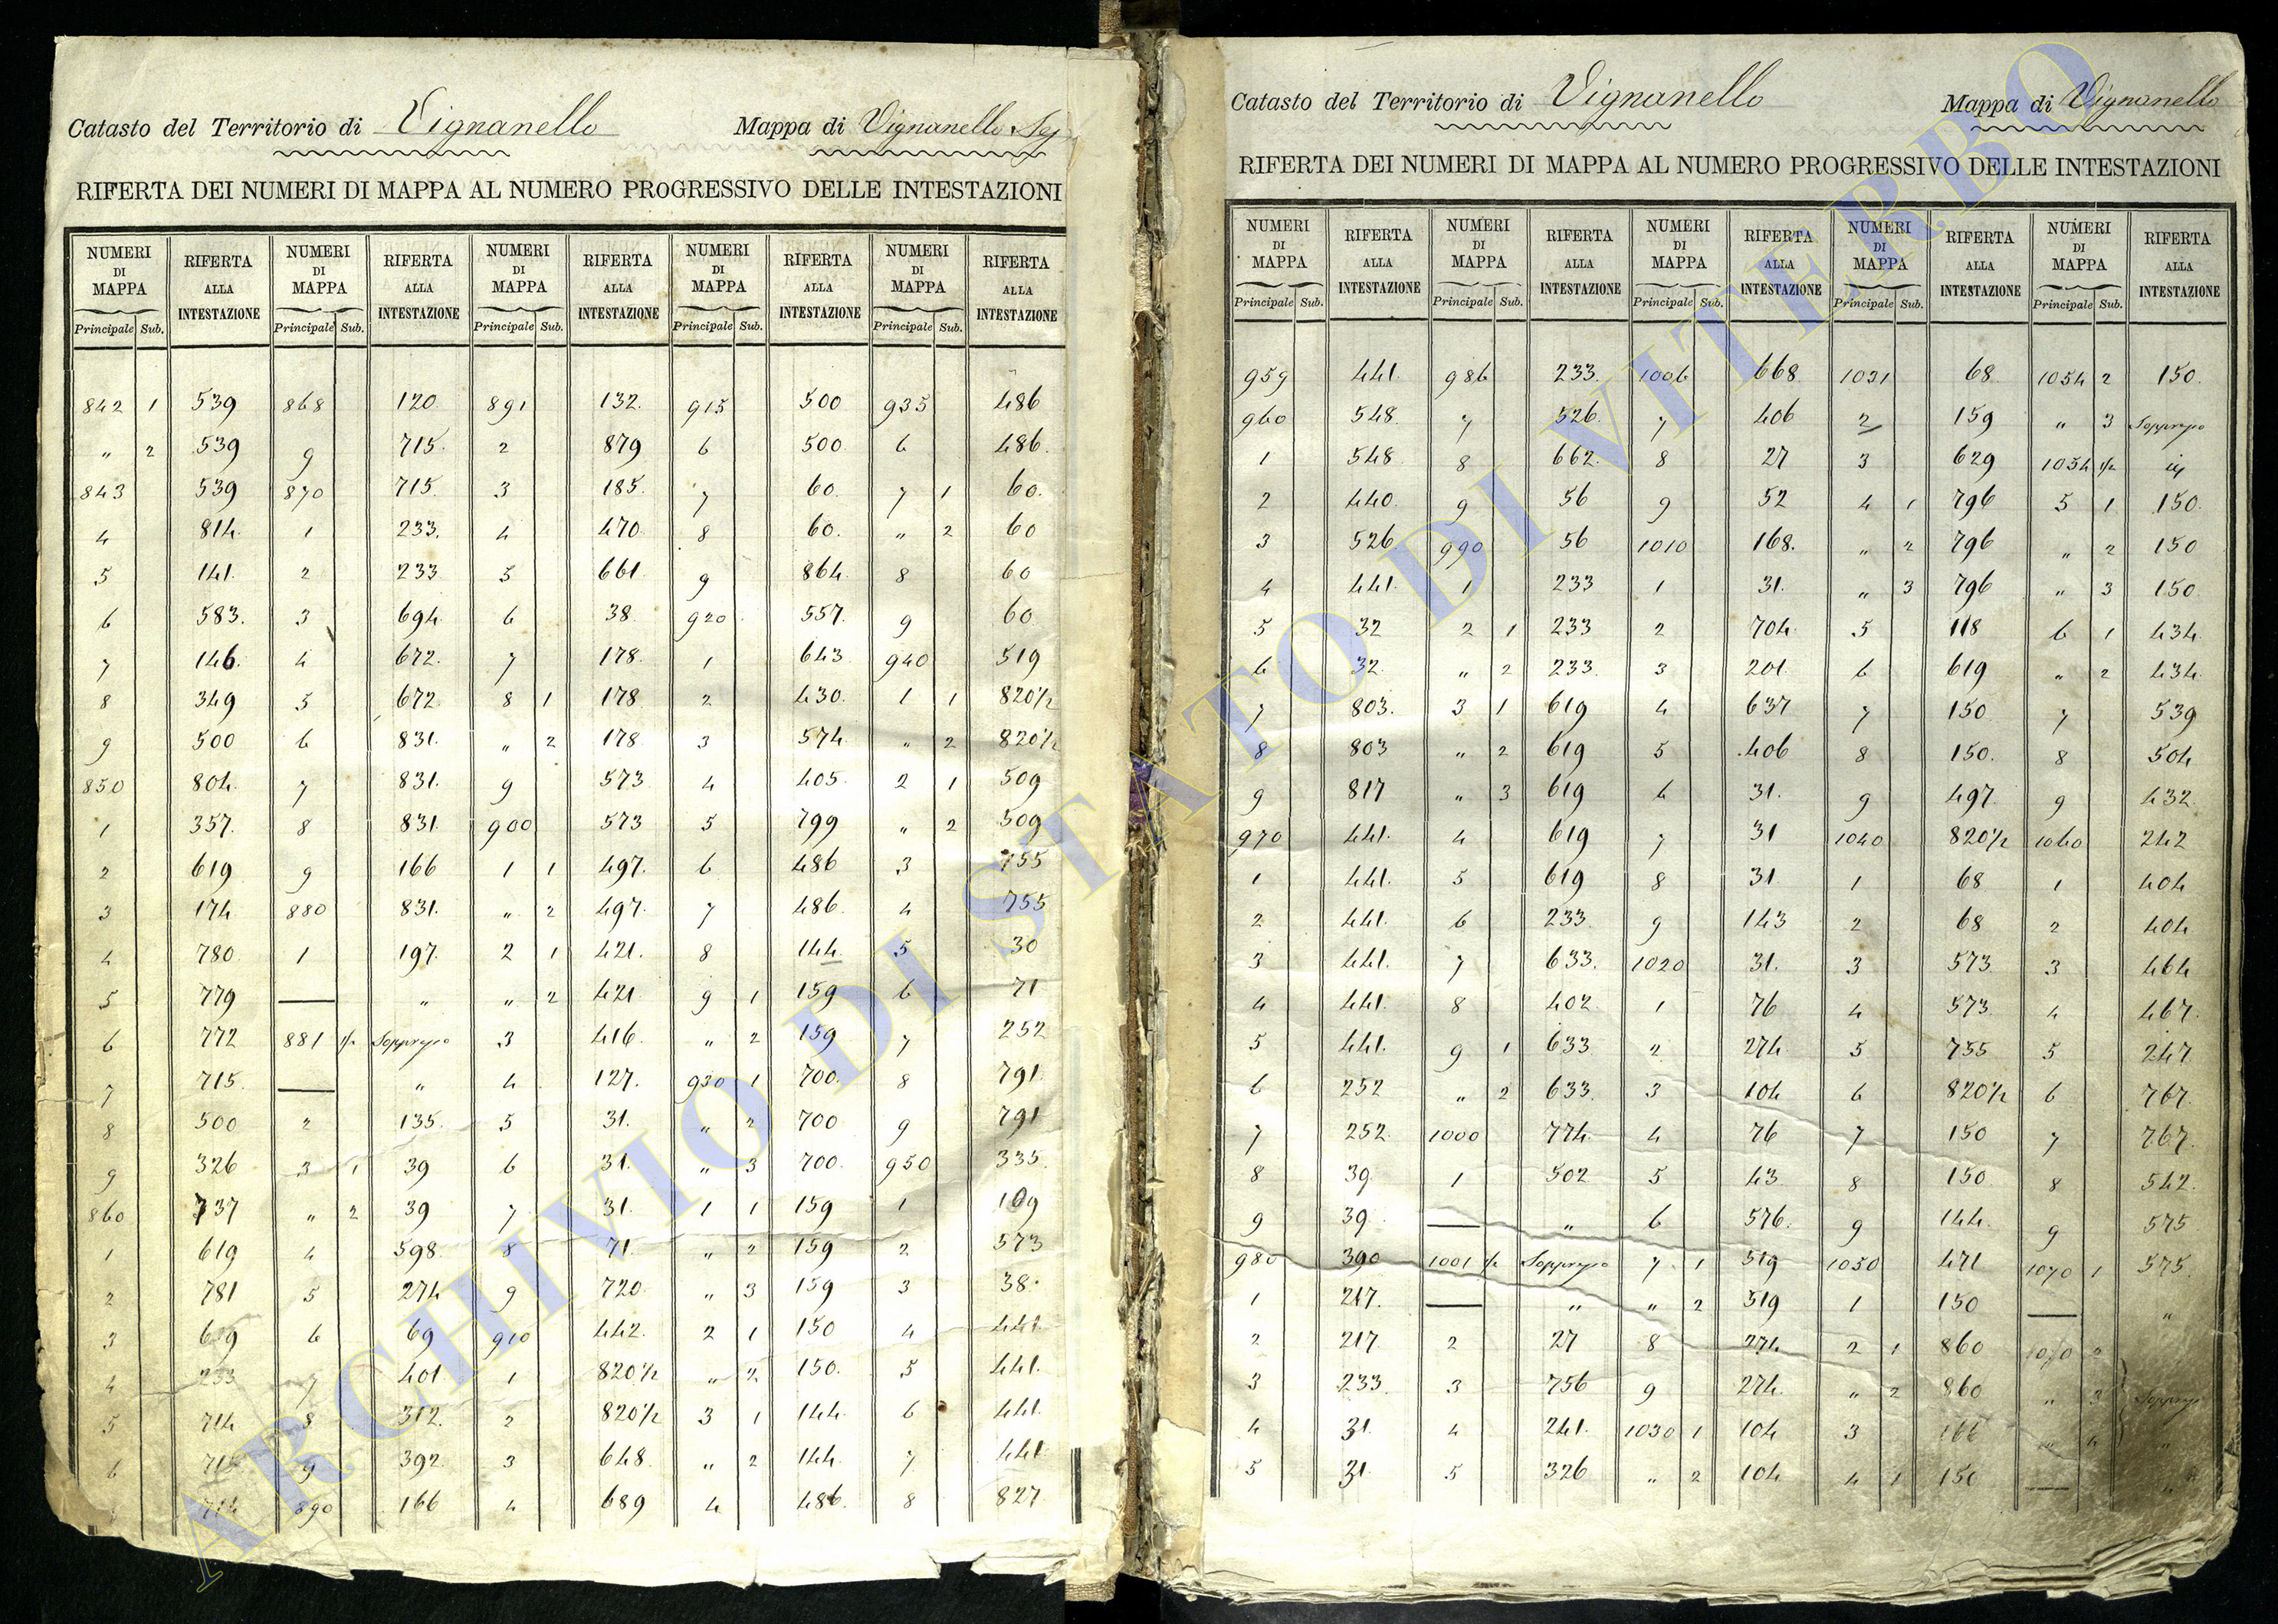 Catasto del Territorio di Vignanello Mappa di Vignanello Seg
RIFERTA DEI NUMERI DI MAPPA AL NUMERO PROGRESSIVO DELLE INTESTAZIONI
NUMERI DI MAPPA RIFERTA ALLA INTESTAZIONE NUMERI DI MAPPA RIFERTA ALLA INTESTAZIONE NUMERI DI MAPPA RIFERTA ALLA INTESTAZIONE NUMERI DI MAPPA RIFERTA ALLA INTESTAZIONE NUMERI DI MAPPA RIFERTA ALLA INTESTAZIONE
Principale Sub. Principale Sub. Principale Sub. Principale Sub. Principale Sub.
842 1 539 868 120. 891 132. 915 500 935 486
" 2 539 9 715. 2 879 6 500 6 486.
843 539 870 715. 3 185. 7 60. 7 1 60.
4 814. 1 233. 4 470. 8 60. " 2 60
5 141. 2 233 5 661. 9 864. 8 60
6 583. 3 694. 6 38. 920. 557. 9 60
7 146. 4 672. 7 178. 1 643 940 519
8 349 5 672 8 1 178 2 430. 1 1 820½
9 500 6 831. " 2 178 3 574. " 2 820½
850 804. 7 831. 9 573 4 405. 2 1 509
1 357. 8 831. 900 573 5 799 " 2 509
2 619 9 166 1 1 497. 6 486 3 755
3 174 880 831. " 2 497. 7 486. 4 755
4 780. 1 197. 2 1 421. 8 144. 5 30
5 779 — " " 2 421 9 1 159 6 71
6 772 881 ½ Soppresso 3 416. " 2 159 7 252
7 715. — " 4 127. 930 1 700. 8 791.
8 500 2 135. 5 31. " 2 700 9 791
9 326 3 1 39 6 31. " 3 700. 950 335.
860 737 " 2 39 7 31. 1 1 159 1 109
1 619 4 598. 8 71. " 2 159 2 573
2 781 5 274 9 720. " 3 159 3 38.
3 619 6 69 910 442. 2 1 150 4 441.
4 233 7 401 1 820½ " 2 150. 5 441.
5 714 8 312. 2 820½ 3 1 144. 6 441.
6 9 392 3 648. " 2 144. 7 441
714 890 166 4 689 4 486. 8 827
Catasto del Territorio di Vignanello Mappa di Vignanello
RIFERTA DEI NUMERI DI MAPPA AL NUMERO PROGRESSIVO DELLE INTESTAZIONI
NUMERI DI MAPPA RIFERTA ALLA INTESTAZIONE NUMERI DI MAPPA RIFERTA ALLA INTESTAZIONE NUMERI DI MAPPA RIFERTA ALLA INTESTAZIONE NUMERI DI MAPPA RIFERTA ALLA INTESTAZIONE NUMERI DI MAPPA RIFERTA ALLA INTESTAZIONE
Principale Sub. Principale Sub. Principale Sub. Principale Sub. Principale Sub.
959 441. 986 233. 1006 668. 1031 68. 1054 2 150.
960 548. 7 526. 7 406 2 159 " 3 Soppresso
1 548. 8 662. 8 27 3 629 1054 ½
2 440. 9 56 9 52 4 1 796 5 1 150.
3 526. 990 56 1010 168. " 2 796 " 2 150
4 441. 1 233 1 31. " 3 796 " 3 150.
5 32 2 1 233 2 704. 5 118 6 1 434.
6 32. " 2 233. 3 201. 6 619 " 2 434.
7 803. 3 1 619 4 637 7 150 7 539
8 803 " 2 619 5 406 8 150. 8 504
9 817 " 3 619 6 31. 9 497. 9 432
970 441. 4 619 7 31 1040 820½ 1060 242
1 441. 5 619 8 31. 1 68 1 404
2 441. 6 233. 9 143 2 68 2 404
3 441. 7 633. 1020 31. 3 573 3 464
4 441. 8 402. 1 76 4 573. 4 467.
5 441. 9 1 633 2 274. 5 755 5 247
6 252 " 2 633. 3 104 6 820½ 6 767.
7 252 1000 774. 4 76 7 150 7 767.
8 39. 1 502 5 43 8 150. 8 542.
9 39. — " 6 576. 9 144. 9 575
980 390 1001 ½ Soppresso 7 1 519 1050 471 1070 1 575.
1 217. — " " 2 519 1 150 — "
2 217. 2 27 8 274 2 1 860 1070 2
3 233. 3 756 9 274. " 2 860 " 3 Soppresso
4 31. 4 241. 1030 1 104 3 166 " 4 "
5 31. 5 326 " 2 104 4 1 150 — "
ARCHIVIO DI STATO DI VITERBO